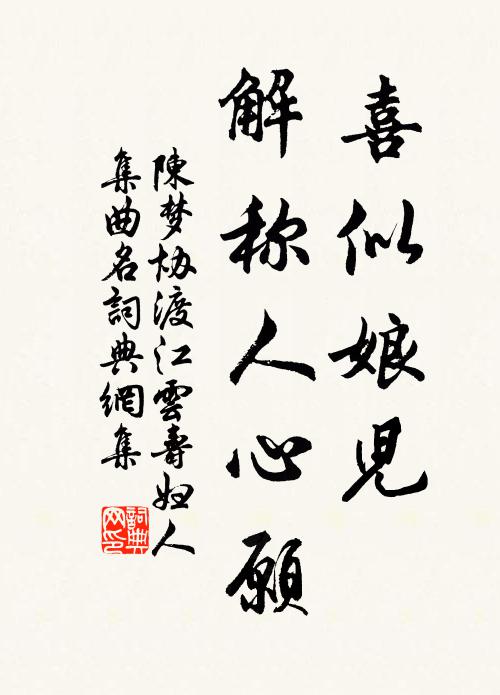 喜似娘児
解称人心願
陳梦协渡江雲壽妇人
集曲名詞典網集
詞典网印